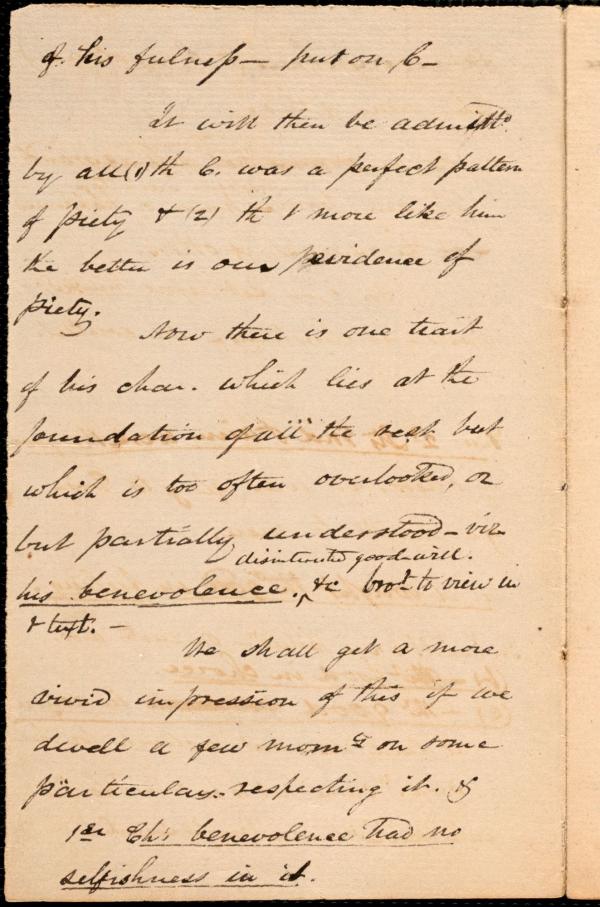 of his fulness — put on C —
It will then be admitted
by all (1) th C. was a perfect pattern
of piety & (2) th t more like him
the better is our evidence of
piety.
Now there is one trait
of his char. which lies at the
foundation of all the rest but
which is too often overlooked, or
but partially understood — viz
disinterested good-will.
his benevolence. ^ &c bro't to view in
t text. —
We shall get a more
vivid impression of this if we
dwell a few momts on some
particulars respecting it. &
1st Ch's benevolence had no
selfishness in it.